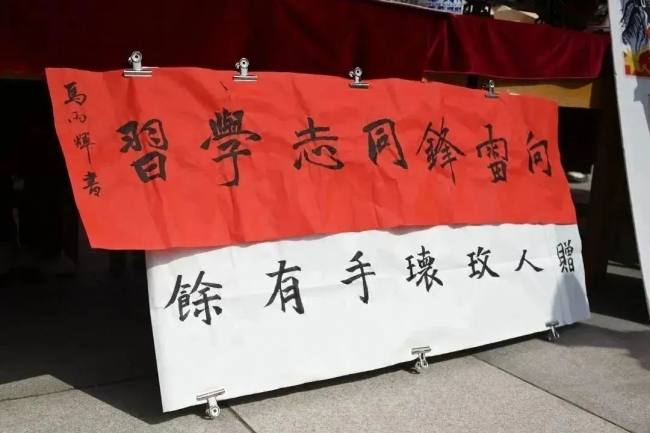 向雷鋒同志學習
馬雨輝書
贈人玫瓌手有餘